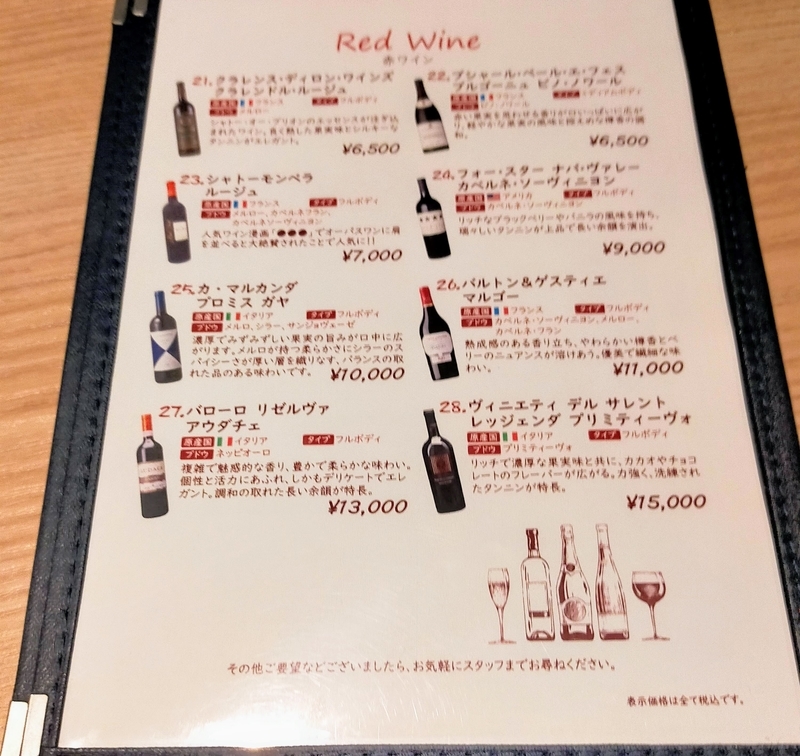 Red Wine
赤ワイン
21.クラレンス・ディロン・ワインズ
クラレンドル・ルージュ
原産国 フランス タイプ フルボディ
ブドウ メルロー
シャトー・オー・ブリオンのエッセンスが注ぎ込
まれたワイン。良く熟した果実味とシルキーな
タンニンがエレガント。
¥6,500
22.ブシャール・ペール・エ・フィス
ブルゴーニュ ピノ・ノワール
原産国 フランス タイプ ミディアムボディ
ブドウ ピノ・ノワール
赤い果実を思わせる香りがいっぱいに広が
り、軽やかな果実の風味と控えめな樽香の調
和。
¥6,500
23.シャトーモンペラ
ルージュ
原産国 フランス タイプ フルボディ
ブドウ メルロー、カベルネフラン、
カベルネソーヴィニヨン
人気ワイン漫画「●●●」でオーパスワンに肩
を並べると大絶賛されたことで人気に!!
¥7,000
24.フォー・スター ナパ・ヴァレー
カベルネ・ソーヴィニヨン
原産国 アメリカ タイプ フルボディ
ブドウ カベルネ・ソーヴィニヨン
リッチなブラックベリーやバニラの風味を持ち、
瑞々しいタンニンが上品で長い余韻を演出。
¥9,000
25.カ・マルカンダ
プロミス ガヤ
原産国 イタリア タイプ フルボディ
ブドウ メルロ、シラー、サンジョヴェーゼ
濃厚でみずみずしい果実の旨みが口中に広
がります。メルロが持つ柔らかさにシラーのス
パイシーさが厚い層を織りなす、バランスの取
れた品のある味わいです。
¥10,000
26.バルトン&ゲスティエ
マルゴー
原産国 フランス タイプ フルボディ
ブドウ カベルネ・ソーヴィニヨン、メルロー、
カベルネ・フラン
熟成感のある香り立ち、やわらかい樽香とベ
リーのニュアンスが溶けあう。優美で繊細な味
わい。
¥11,000
27.バローロ リゼルヴァ
アウダチェ
原産国 イタリア タイプ フルボディ
ブドウ ネッビオーロ
複雑で魅惑的な香り、豊かで柔らかな味わい。
個性と活力にあふれ、しかもデリケートでエレ
ガント。調和の取れた長い余韻が特長。
¥13,000
28.ヴィニエティ デル サレント
レッジェンダ プリミティーヴォ
原産国 イタリア タイプ フルボディ
ブドウ プリミティーヴォ
リッチで濃厚な果実味と共に、カカオやチョコ
レートのフレーバーが広がる。力強く、洗練され
たタンニンが特長。
¥15,000
その他ご要望などございましたら、お気軽にスタッフまでお尋ねください。
表示価格は全て税込です。